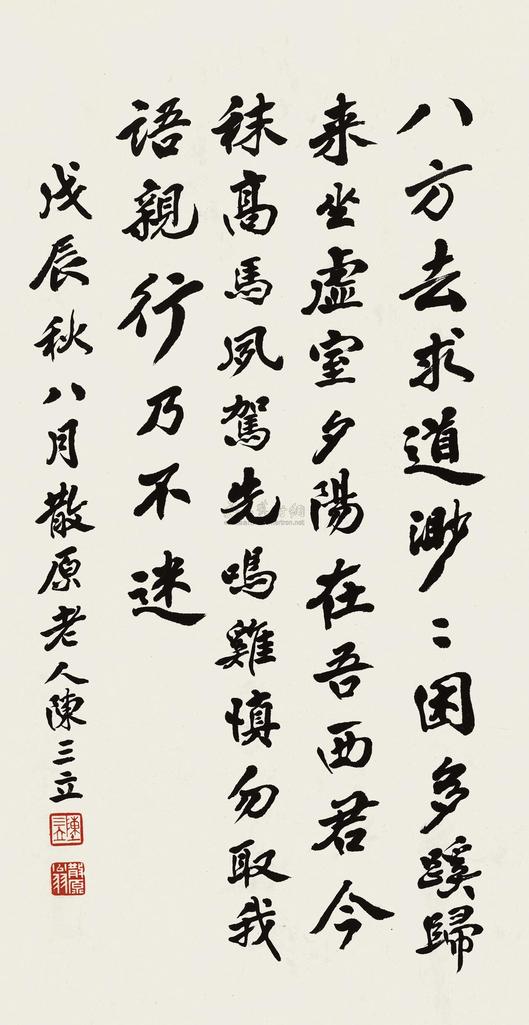 八方去求道渺〻困多蹊歸
来坐虛室夕陽在吾西君今
秣高馬夙駕先鳴雞慎勿取我
語親行乃不迷
戊辰秋八月散原老人陳三立
陳三立
散原